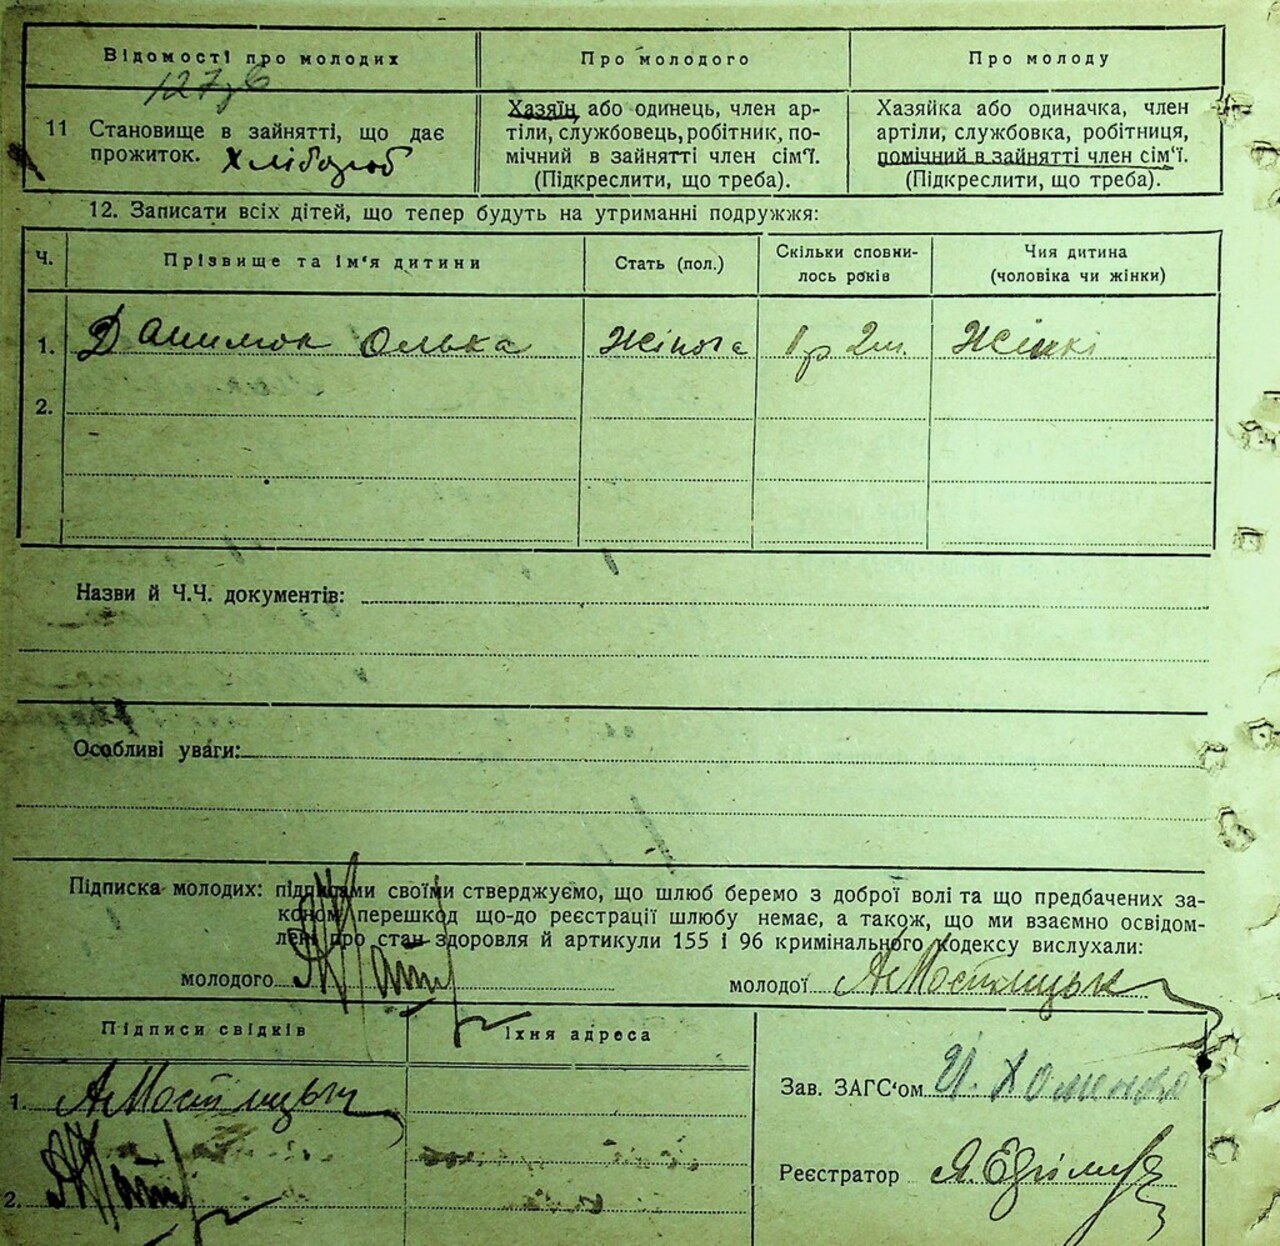 Відомості про молодих
Про молодого
Про молоду
127
11 Становище в зайнятті, що дає
прожиток. Хлібороб
Хазяїн або одинець, член ар-
тіли, службовець, робітник, по-
мічний в зайнятті член сім'ї.
(Підкреслити, що треба).
Хазяйка або одиначка, член
артіли, службовка, робітниця,
помічний в зайнятті член сім'ї.
(Підкреслити, що треба).
12. Записати всіх дітей, що тепер будуть на утриманні подружжя:
Ч.
Прізвище та ім'я дитини
Стать (пол.)
Скільки сповни-
лось років
Чия дитина
(чоловіка чи жінки)
1. Данимок Олька Жіноча 1 р 2 м. Жінкі
2.
Назви й Ч.Ч. документів:
Особливі уваги:
Підписка молодих: підписами своїми стверджуємо, що шлюб беремо з доброї волі та що предбачених за-
коном перешкод що-до реєстрації шлюбу немає, а також, що ми взаємно освідом-
лені про стан здоровля й артикули 155 і 96 кримінального кодексу вислухали:
молодого
молодої АМостицьк
Підписи свідків
Їхня адреса
1. АМостицьк
2.
Зав. ЗАГС'ом И. Хоменко
Реєстратор